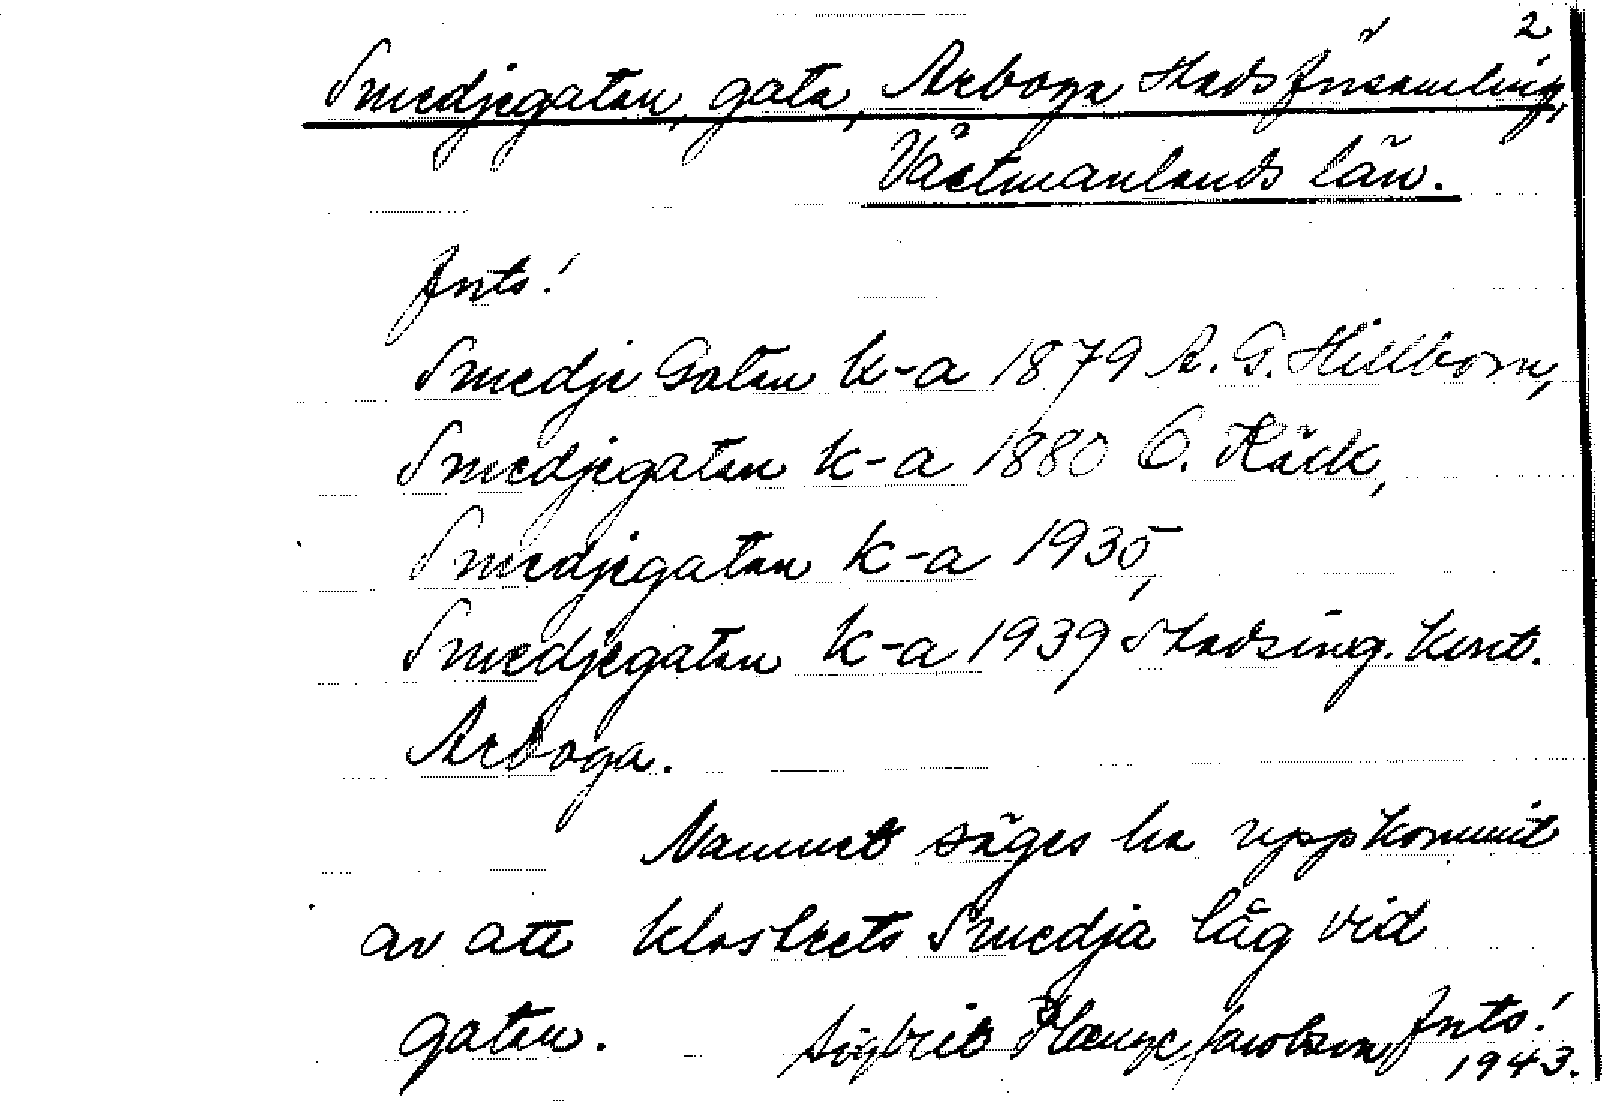 2
Smedjegatan, gata, Arboga stadsförsamling,
Västmanlands län.
Forts!
Smedje Gatan k-a 1879 A. G. Hillbom,
Smedjegatan k-a 1880 O. Käck,
Smedjegatan k-a 1935,
Smedjegatan k-a 1939 Stadsing. Kont.
Arboga.
Namnet säges ha uppkommit
av att klostrets Smedja låg vid
gatan. Sigbrit Jacobson, Forts!
1943.